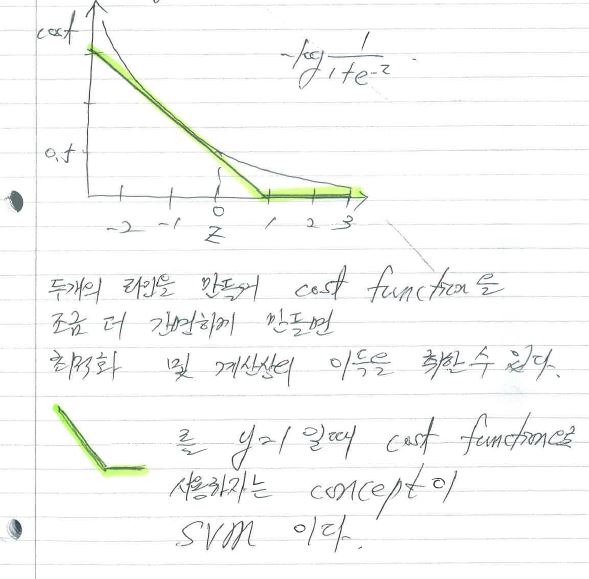 cost
-log 1/(1+e^-z)
0.5
-2 -1 0 1 2 3
Z
두개의 라인을 만들어 cost function을
조금 더 간편하게 만들면
최적화 및 계산상의 이득을 취할 수 있다.
를 y=1 일때 cost function으로
사용하자는 concept이
SVM 이다.